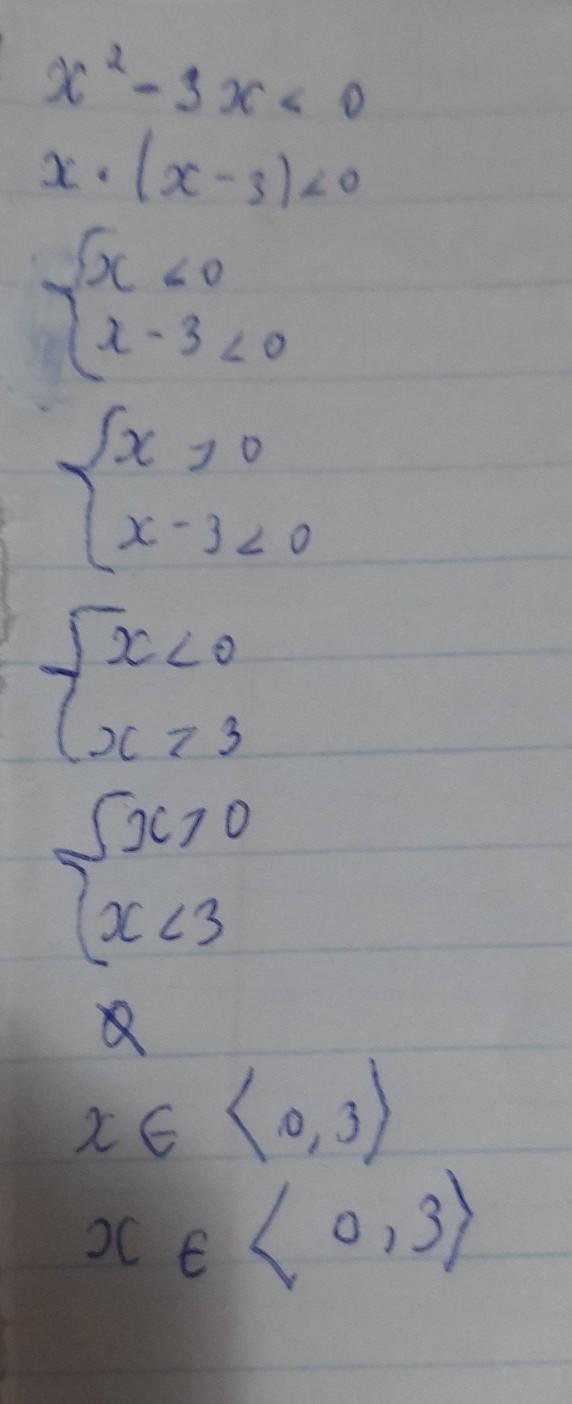 x² - 3x < 0
x · (x - 3) < 0
{x < 0
x - 3 < 0
{x > 0
x - 3 < 0
{x < 0
x > 3
{x > 0
x < 3
∅
x ∈ ⟨0, 3⟩
x ∈ ⟨0, 3⟩